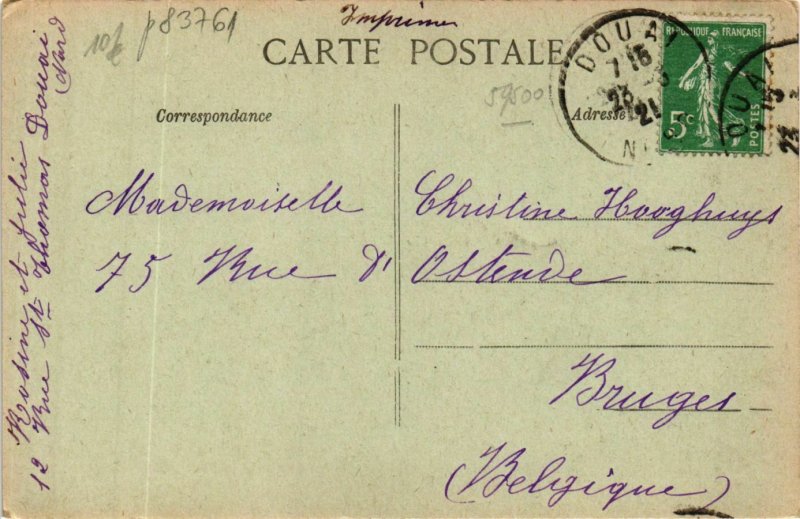 Imprimé
10f p83761
CARTE POSTALE
59500
Correspondance
Adresse
DOUAI
7 15
23 - 3
21
NORD
REPUBLIQUE FRANÇAISE
5c
POSTES
DOUAI
23
Mademoiselle Christine Hooghuys
75 Rue d' Ostende
Bruges
(Belgique)
Rosine et Julie
12 Rue St Thomas Douai
Nord